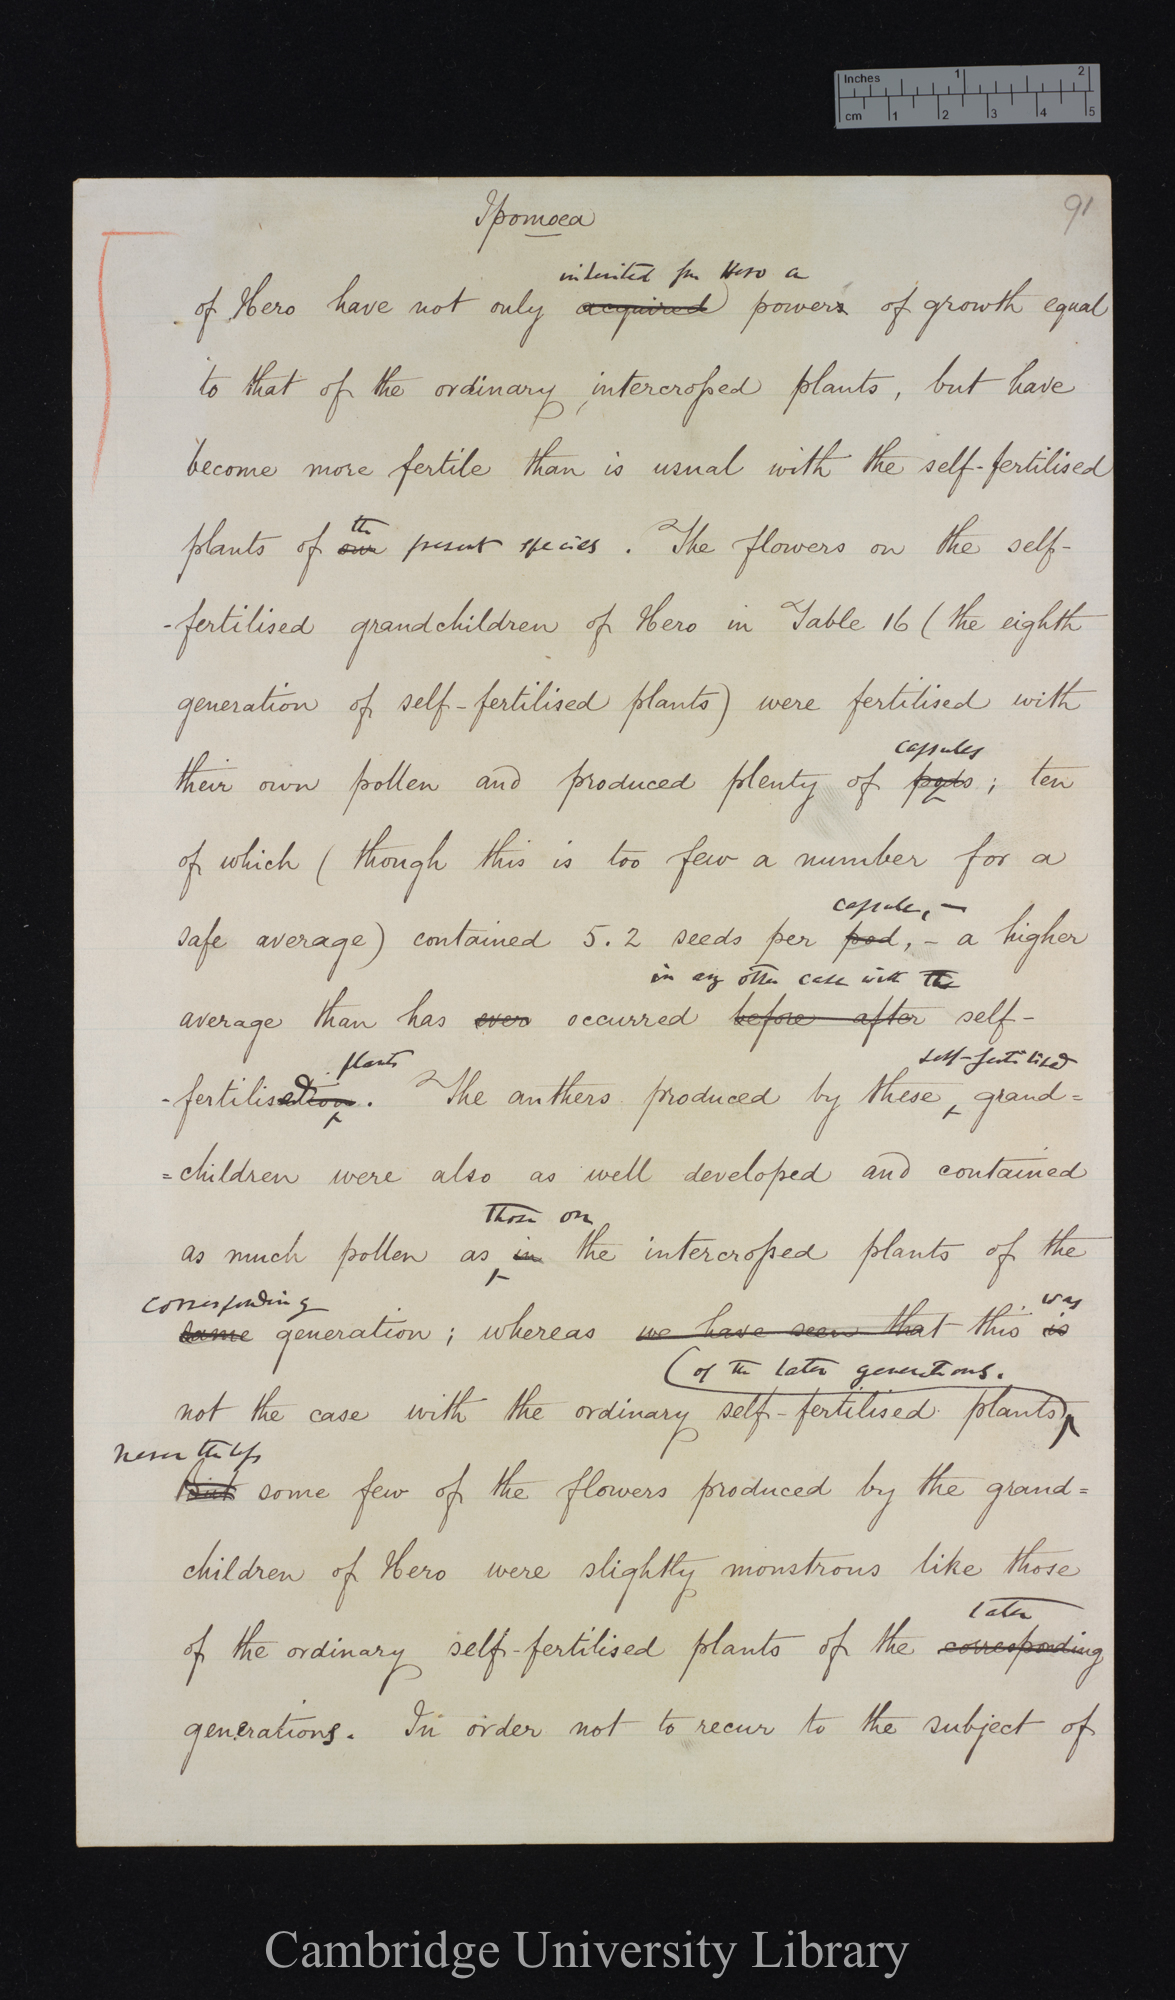 Inches 1 2
cm 1 2 3 4 5
Ipomoea
91
inherited fm Hero a
of Hero have not only acquired powers of growth equal
to that of the ordinary intercrossed plants, but have
become more fertile than is usual with the self-fertilised
the
plants of our present species. The flowers on the self-
-fertilised grandchildren of Hero in Table 16 (the eighth
generation of self-fertilised plants) were fertilised with
capsules
their own pollen and produced plenty of pods; ten
of which (though this is too few a number for a
capsule, —
safe average) contained 5.2 seeds per pod, - a higher
in any other case with the
average than has ever occurred before after self-
plants self-fertilised
-fertilisation. The anthers produced by these grand=
=children were also as well developed and contained
those on
as much pollen as in the intercrossed plants of the
corresponding was
same generation; whereas we have seen that this is
(of the later generations.
not the case with the ordinary self-fertilised plants)
Nevertheless
But some few of the flowers produced by the grand=
children of Hero were slightly monstrous like those
later
of the ordinary self-fertilised plants of the corresponding
generations. In order not to recur to the subject of
Cambridge University Library